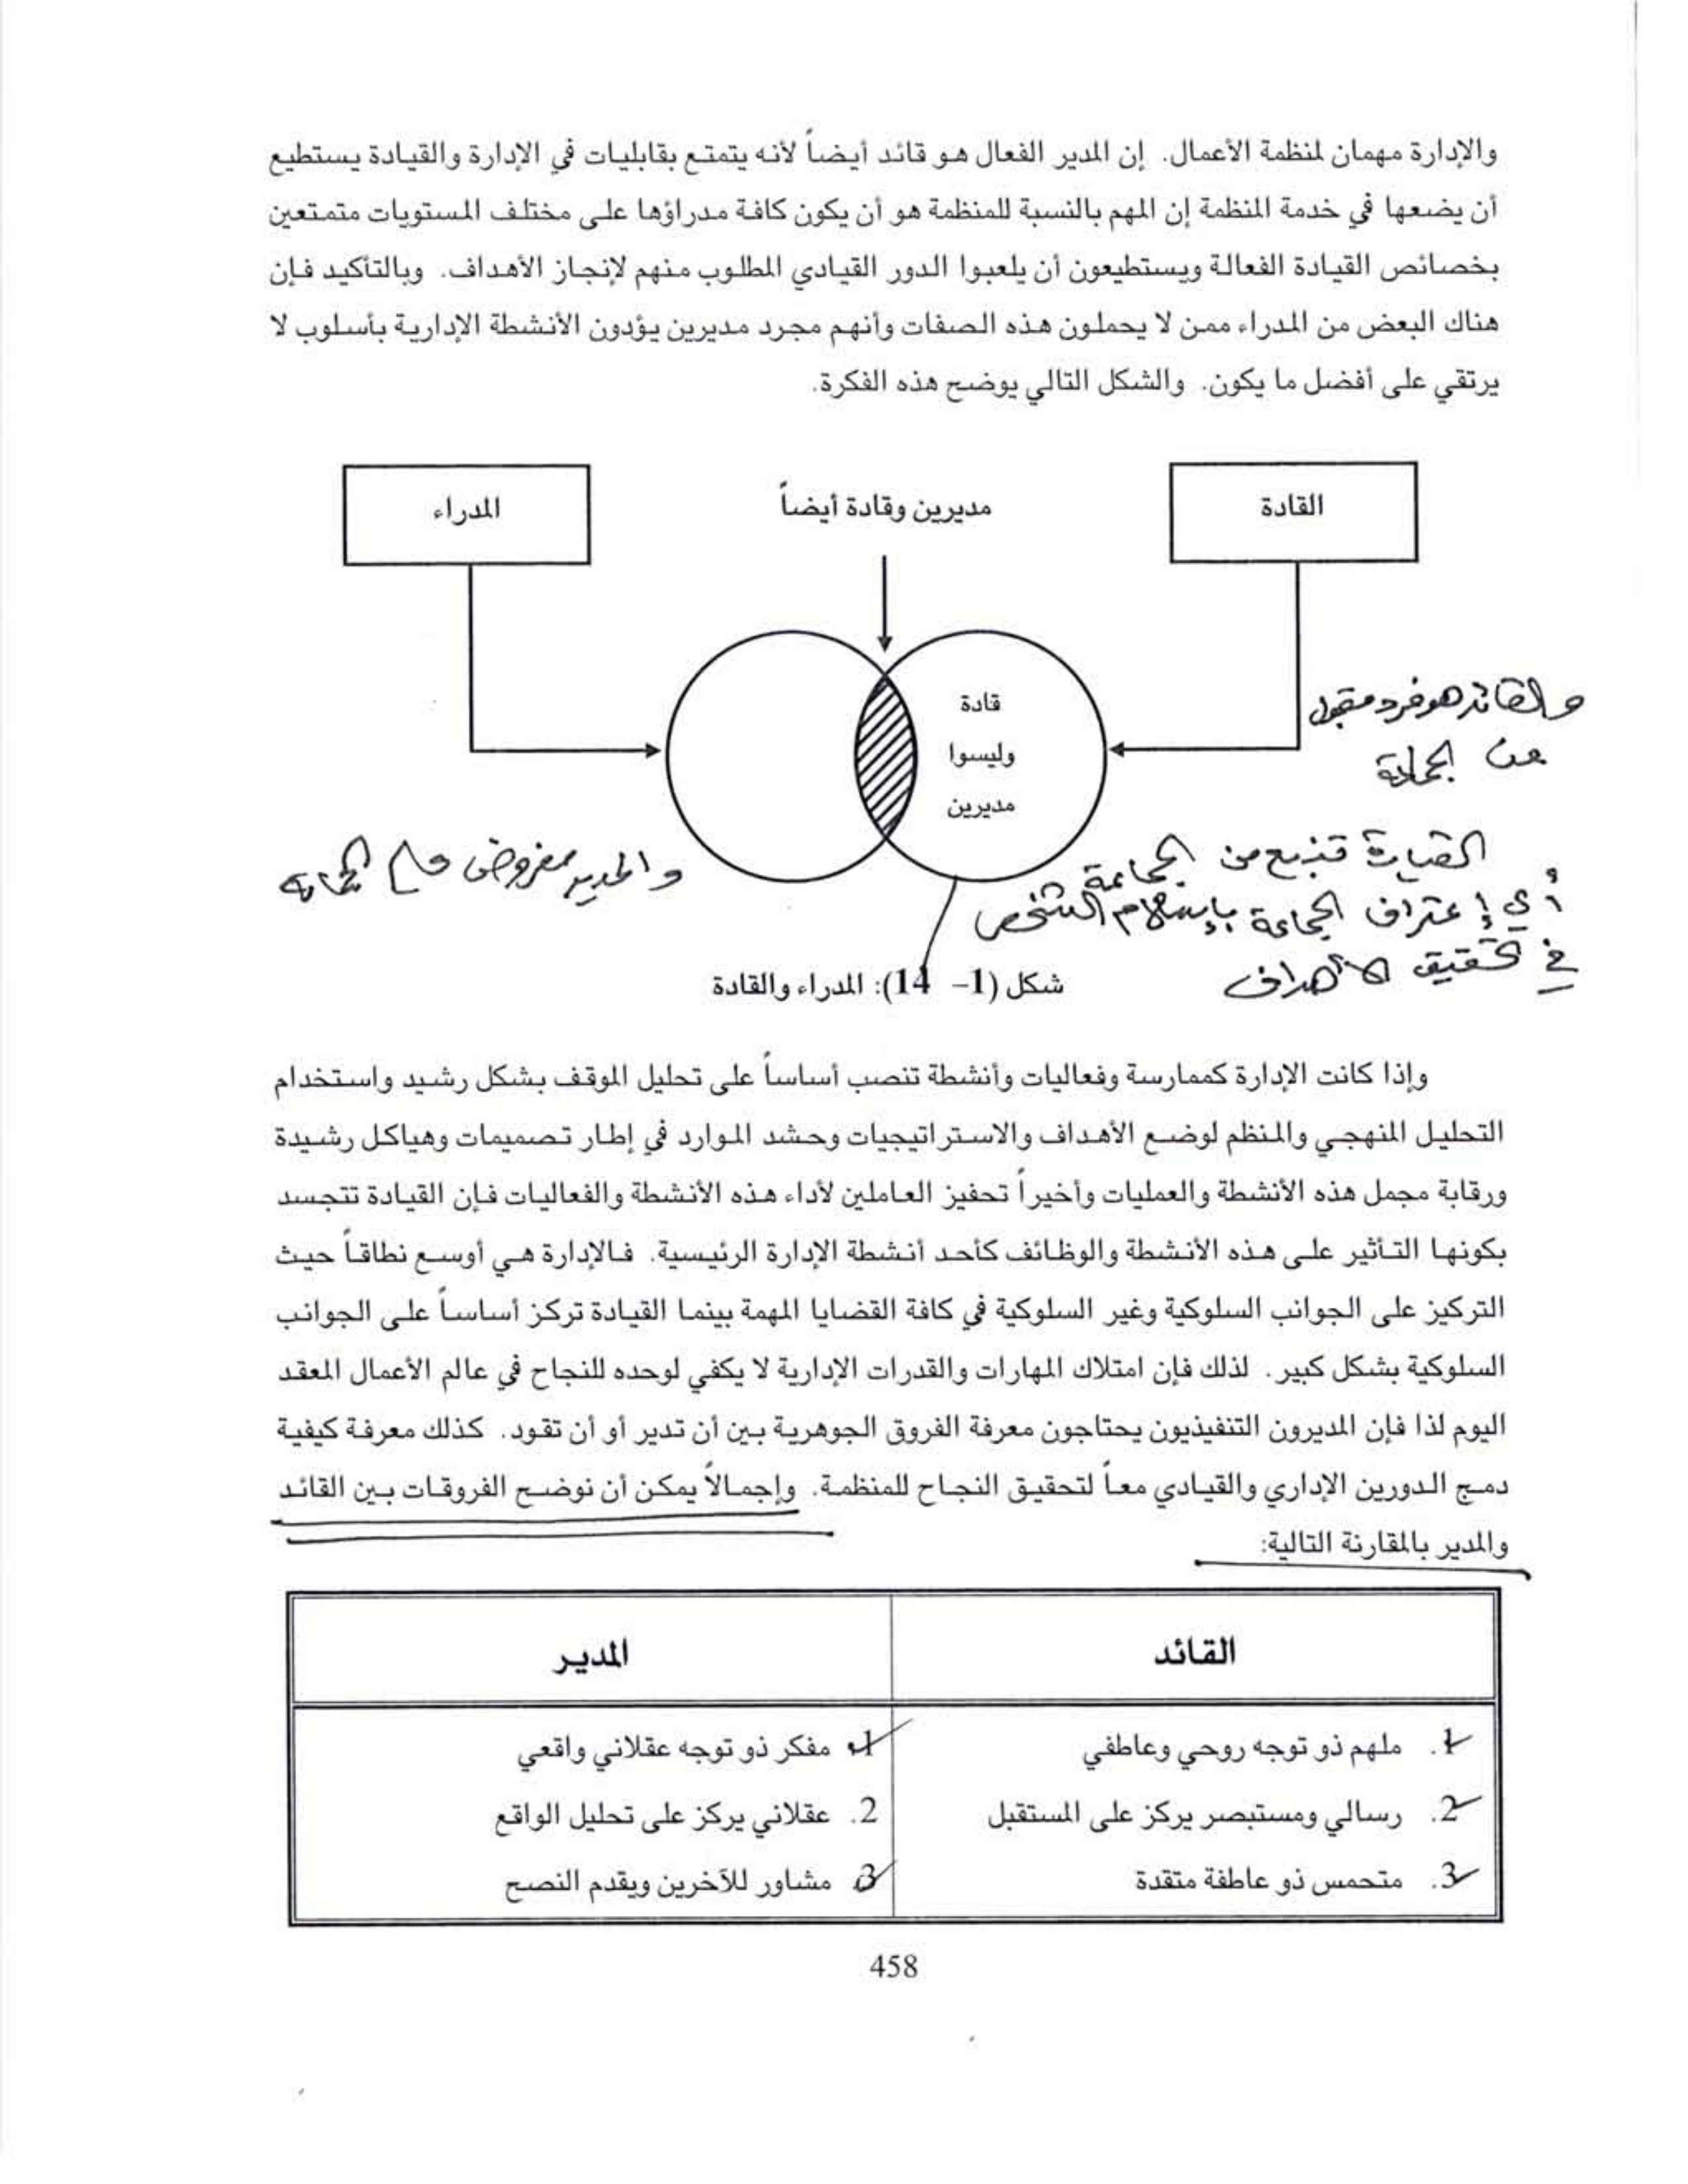 والإدارة مهمان لمنظمة الأعمال. إن المدير الفعال هو قائد أيضاً لأنه يتمتع بقابليات في الإدارة والقيادة يستطيع
أن يضعها في خدمة المنظمة إن المهم بالنسبة للمنظمة هو أن يكون كافة مدراؤها على مختلف المستويات متمتعين
بخصائص القيادة الفعالة ويستطيعون أن يلعبوا الدور القيادي المطلوب منهم لإنجاز الأهداف. وبالتأكيد فإن
هناك البعض من المدراء ممن لا يحملون هذه الصفات وأنهم مجرد مديرين يؤدون الأنشطة الإدارية بأسلوب لا
يرتقي على أفضل ما يكون. والشكل التالي يوضح هذه الفكرة.
القادة
مديرين وقادة أيضاً
المدراء
قادة
وليسوا
مديرين
والقائد هو فرد مقبول
من الجماعة
القيادة تنبع من الجماعة
أي إعتراف الجماعة بإسهام الشخص
في تحقيق الأهداف
والمدير مفروض على الجماعة
شكل (1- 14): المدراء والقادة
وإذا كانت الإدارة كممارسة وفعاليات وأنشطة تنصب أساساً على تحليل الموقف بشكل رشيد واستخدام
التحليل المنهجي والمنظم لوضع الأهداف والاستراتيجيات وحشد الموارد في إطار تصميمات وهياكل رشيدة
ورقابة مجمل هذه الأنشطة والعمليات وأخيراً تحفيز العاملين لأداء هذه الأنشطة والفعاليات فإن القيادة تتجسد
بكونها التأثير على هذه الأنشطة والوظائف كأحد أنشطة الإدارة الرئيسية. فالإدارة هي أوسع نطاقاً حيث
التركيز على الجوانب السلوكية وغير السلوكية في كافة القضايا المهمة بينما القيادة تركز أساساً على الجوانب
السلوكية بشكل كبير. لذلك فإن امتلاك المهارات والقدرات الإدارية لا يكفي لوحده للنجاح في عالم الأعمال المعقد
اليوم لذا فإن المديرون التنفيذيون يحتاجون معرفة الفروق الجوهرية بين أن تدير أو أن تقود. كذلك معرفة كيفية
دمج الدورين الإداري والقيادي معاً لتحقيق النجاح للمنظمة. وإجمالاً يمكن أن نوضح الفروقات بين القائد
والمدير بالمقارنة التالية:
القائد
المدير
1. ملهم ذو توجه روحي وعاطفي
1. مفكر ذو توجه عقلاني واقعي
2. رسالي ومستبصر يركز على المستقبل
2. عقلاني يركز على تحليل الواقع
3. متحمس ذو عاطفة متقدة
3. مشاور للآخرين ويقدم النصح
458